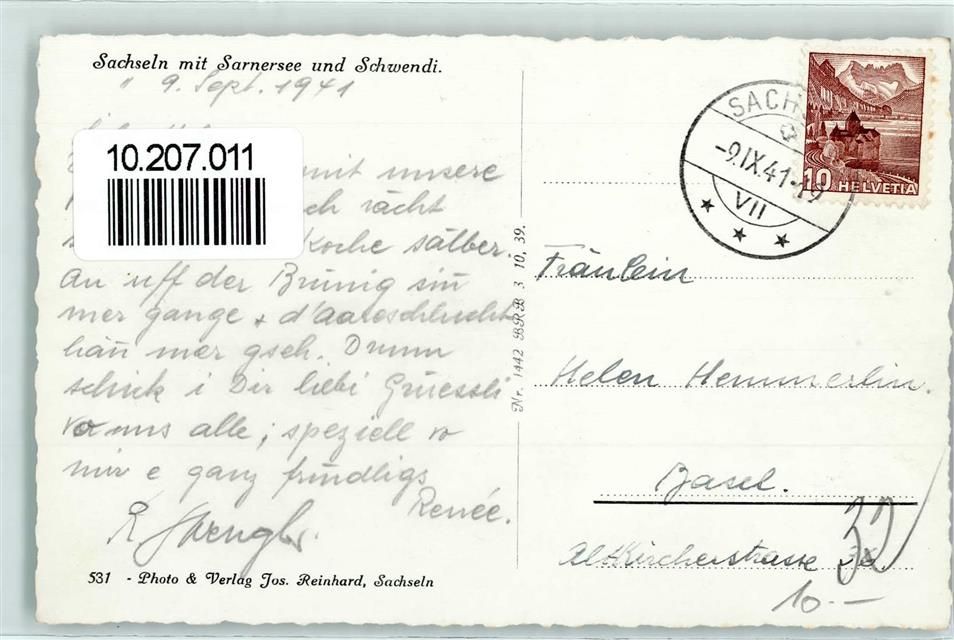 Sachseln mit Sarnersee und Schwendi.
" 9. Sept. 1941
10.207.011
mit unsere
ch rächt
Koche sälber.
An uff der Brünig sin
mer gange + d'Aareschlucht
hän mer gseh. Drum
schick i Dir liebi Grüessli
vo uns alle; speziell vo
mir e ganz fründligs
Renée.
531 - Photo & Verlag Jos. Reinhard, Sachseln
Nr. 1442 BRB 3. 10. 39.
SACH
-9.IX.41-19
VII
10 HELVETIA
Fräulein
Helen Hemmerlin.
Basel.
Altkircherstrasse
32
10.-